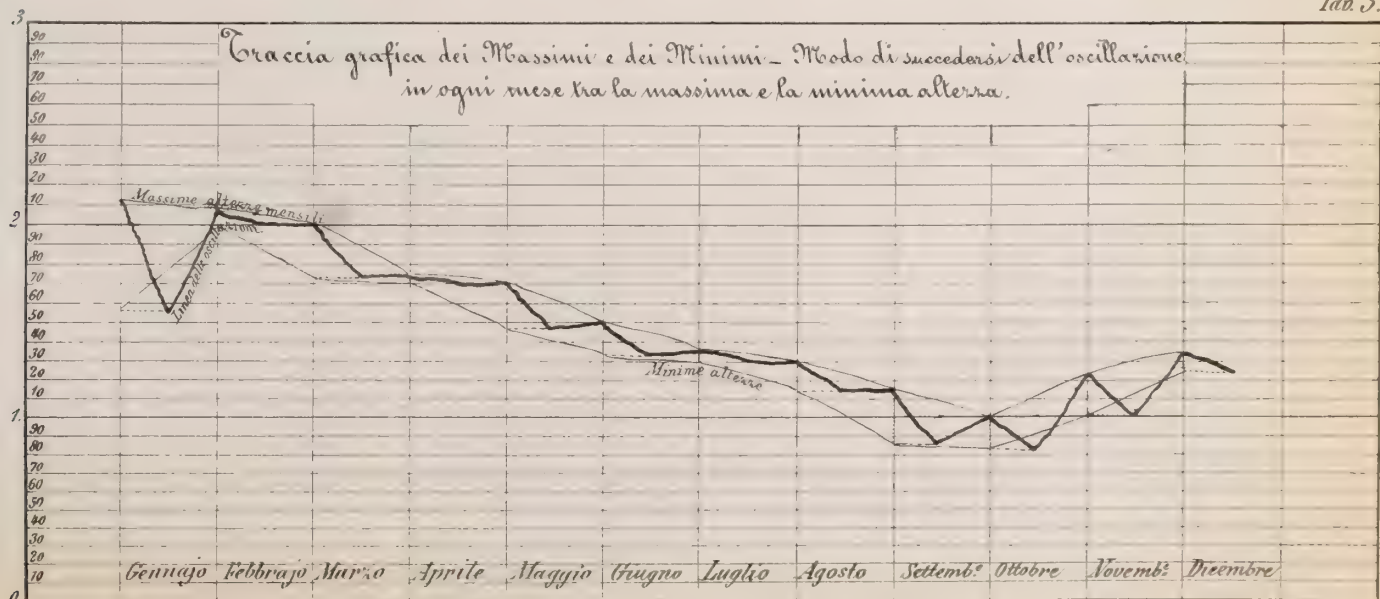 Tab. 3.
Traccia grafica dei Massimi e dei Minimi – Modo di succedersi dell'oscillazione
in ogni mese tra la massima e la minima altezza.
3
90
90
70
60
50
40
30
20
10
2
90
80
70
60
50
40
30
20
10
1
90
80
70
60
50
40
30
20
10
0
Massime altezze mensili
Linea delle oscillazioni
Minime altezze
Gennajo Febbrajo Marzo Aprile Maggio Giugno Luglio Agosto Settemb.e Ottobre Novemb.e Dicembre